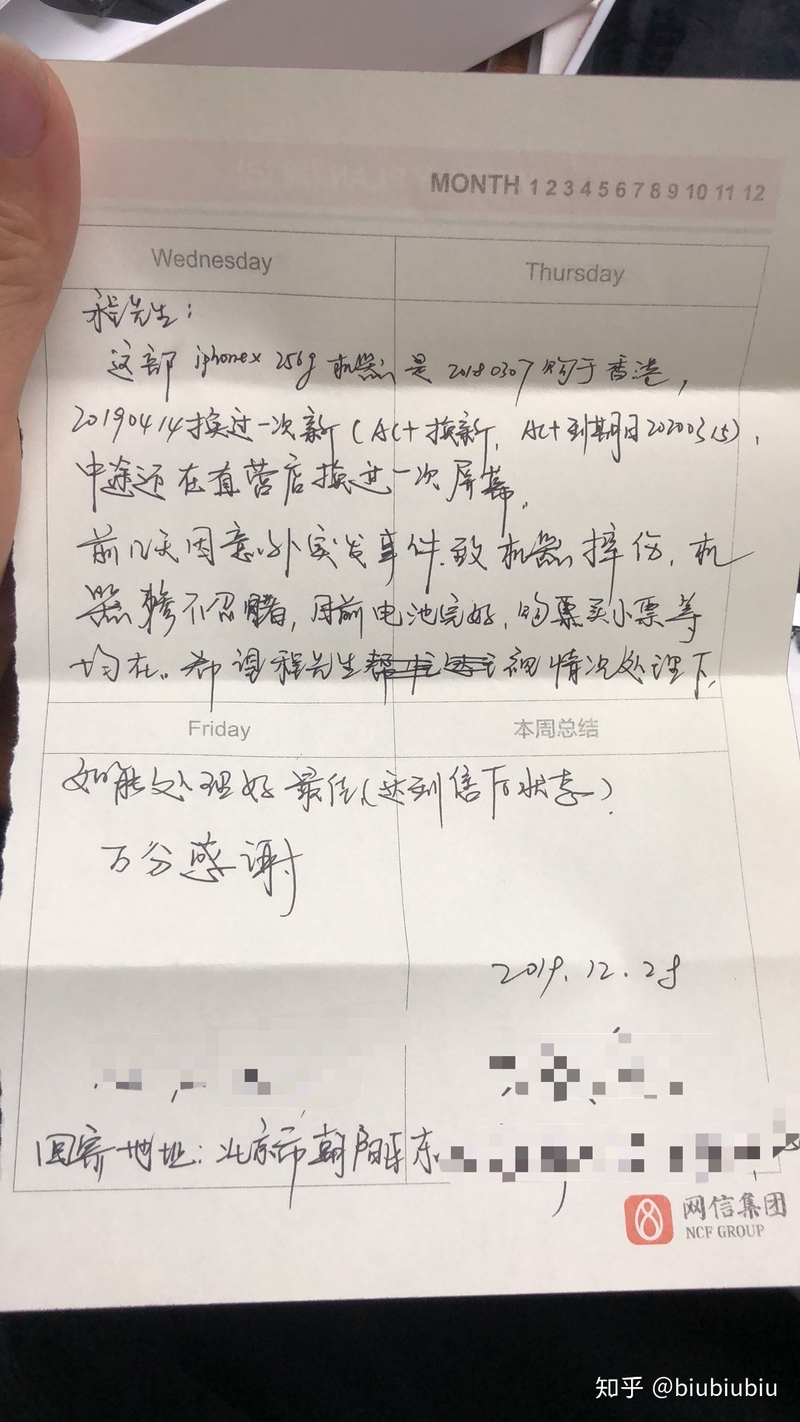 MONTH 1 2 3 4 5 6 7 8 9 10 11 12
Wednesday
Thursday
程先生：
这部 iphonex 256g 机器是 20180307 购于香港，
20190414换过一次新（AC+换新，AC+到期日20200315），
中途还在直营店换过一次屏幕。
前几天因意外突发事件致机器摔伤，机
器惨不忍睹，目前电池完好，购买小票等
均在。希望程先生视情况处理下，
Friday
本周总结
如能处理好最佳（达到售后状态）
万分感谢
2019.12.28
回寄地址：北京市朝阳区东
网信集团
NCF GROUP
知乎 @biubiubiu